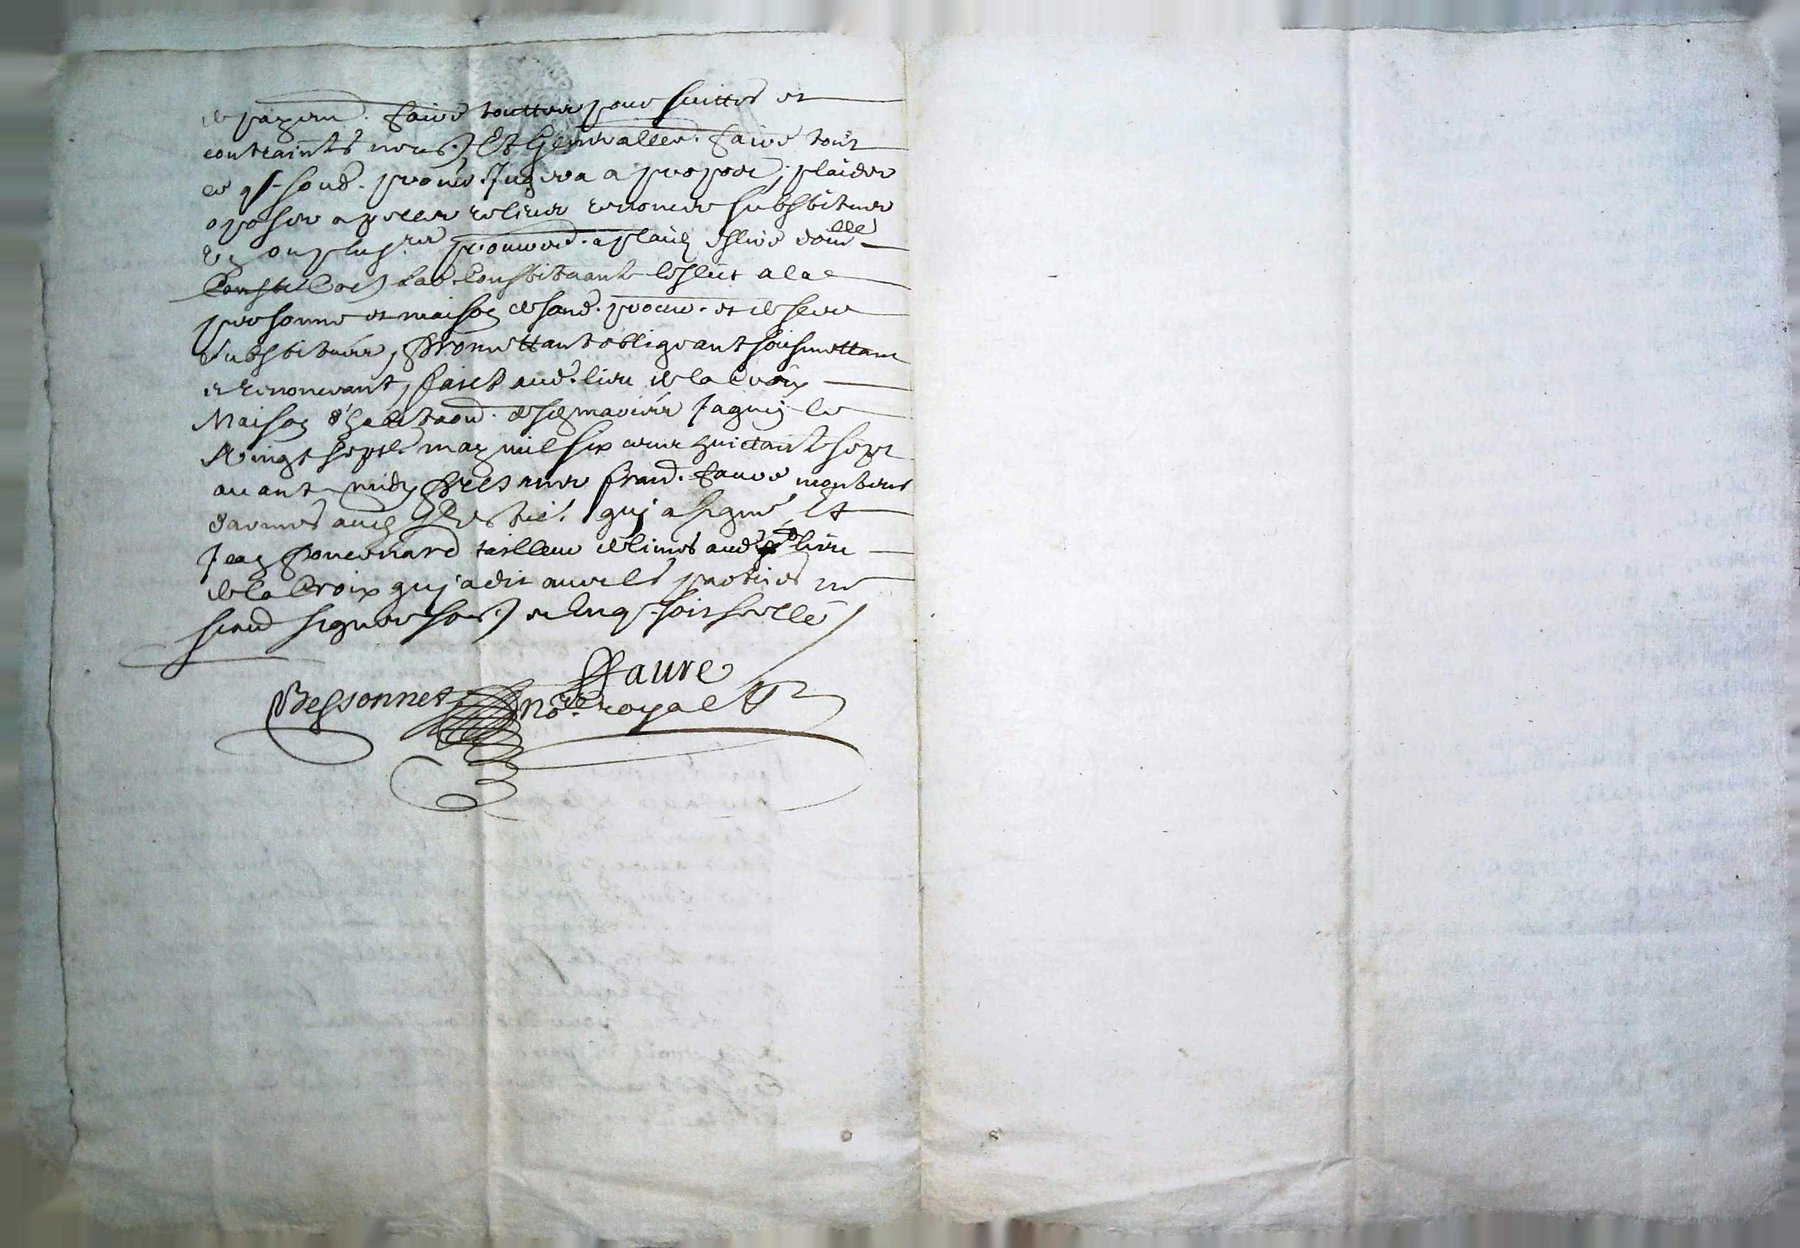 de payem. faire touttes pour suittes et
contraintes neces.) Et Generallem. faire tout
ce q. sond. procur. Jugera a propos, plaider
oposer apeller eslire renoncer substituer
un ou plus.rs procureurs. a plaid eslire domlle
Constit lad. Constituante leslit a la
personne et maison de sond. procur. et de ses
substitués, Promettant obligeant soubsmettant
et renoncant, faict aud. lieu de la Croix
Maison d'habitaon. de Jaquis le
Vingt sept.e may mil six cens huictante sept
avant midy Presens frand. faure
darmes aud. qui a signé Et
Jean tailleur de limes aud. lieu
de la Croix qui a dit avec les parties ne
scavoir signer de ce Enq. soit scellé
Faure
Bessonnet no.re royal